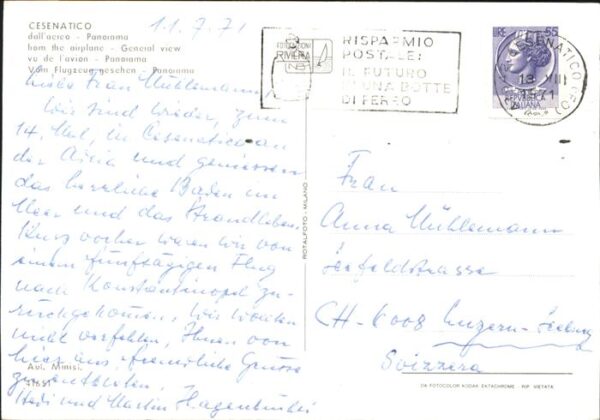 11.7.71
CESENATICO
dall'aereo - Panorama
from the airplane - General view
vu de l'avion - Panorama
Vom Flugzeug gesehen - Panorama
Liebe Frau Mühlemann,
Wir sind wieder, zum
14. Mal, in Cesenatico an
der Adria und geniessen
das herrliche Baden im
Meer und das Strandleben.
Kurz vorher waren wir von
einem fünftägigen Flug
nach Konstantinopel zu-
rückgekommen. Wir wollten
nicht verfehlen, Ihnen von
hier aus freundliche Grüsse
zu entbieten.
Hedi und Martin
Aut. Minist.
41651
ROTALFOTO - MILANO
RIVIERA
RISPARMIO
POSTALE:
IL FUTURO
IN UNA BOTTE
DI FERRO
55
REPUBBLICA
ITALIANA
CESENATICO
Frau
Anna Mühlemann
Seefeldstrasse
CH-6008 Luzern-Seeburg
Svizzera
DA FOTOCOLOR KODAK EKTACHROME - RIP. VIETATA